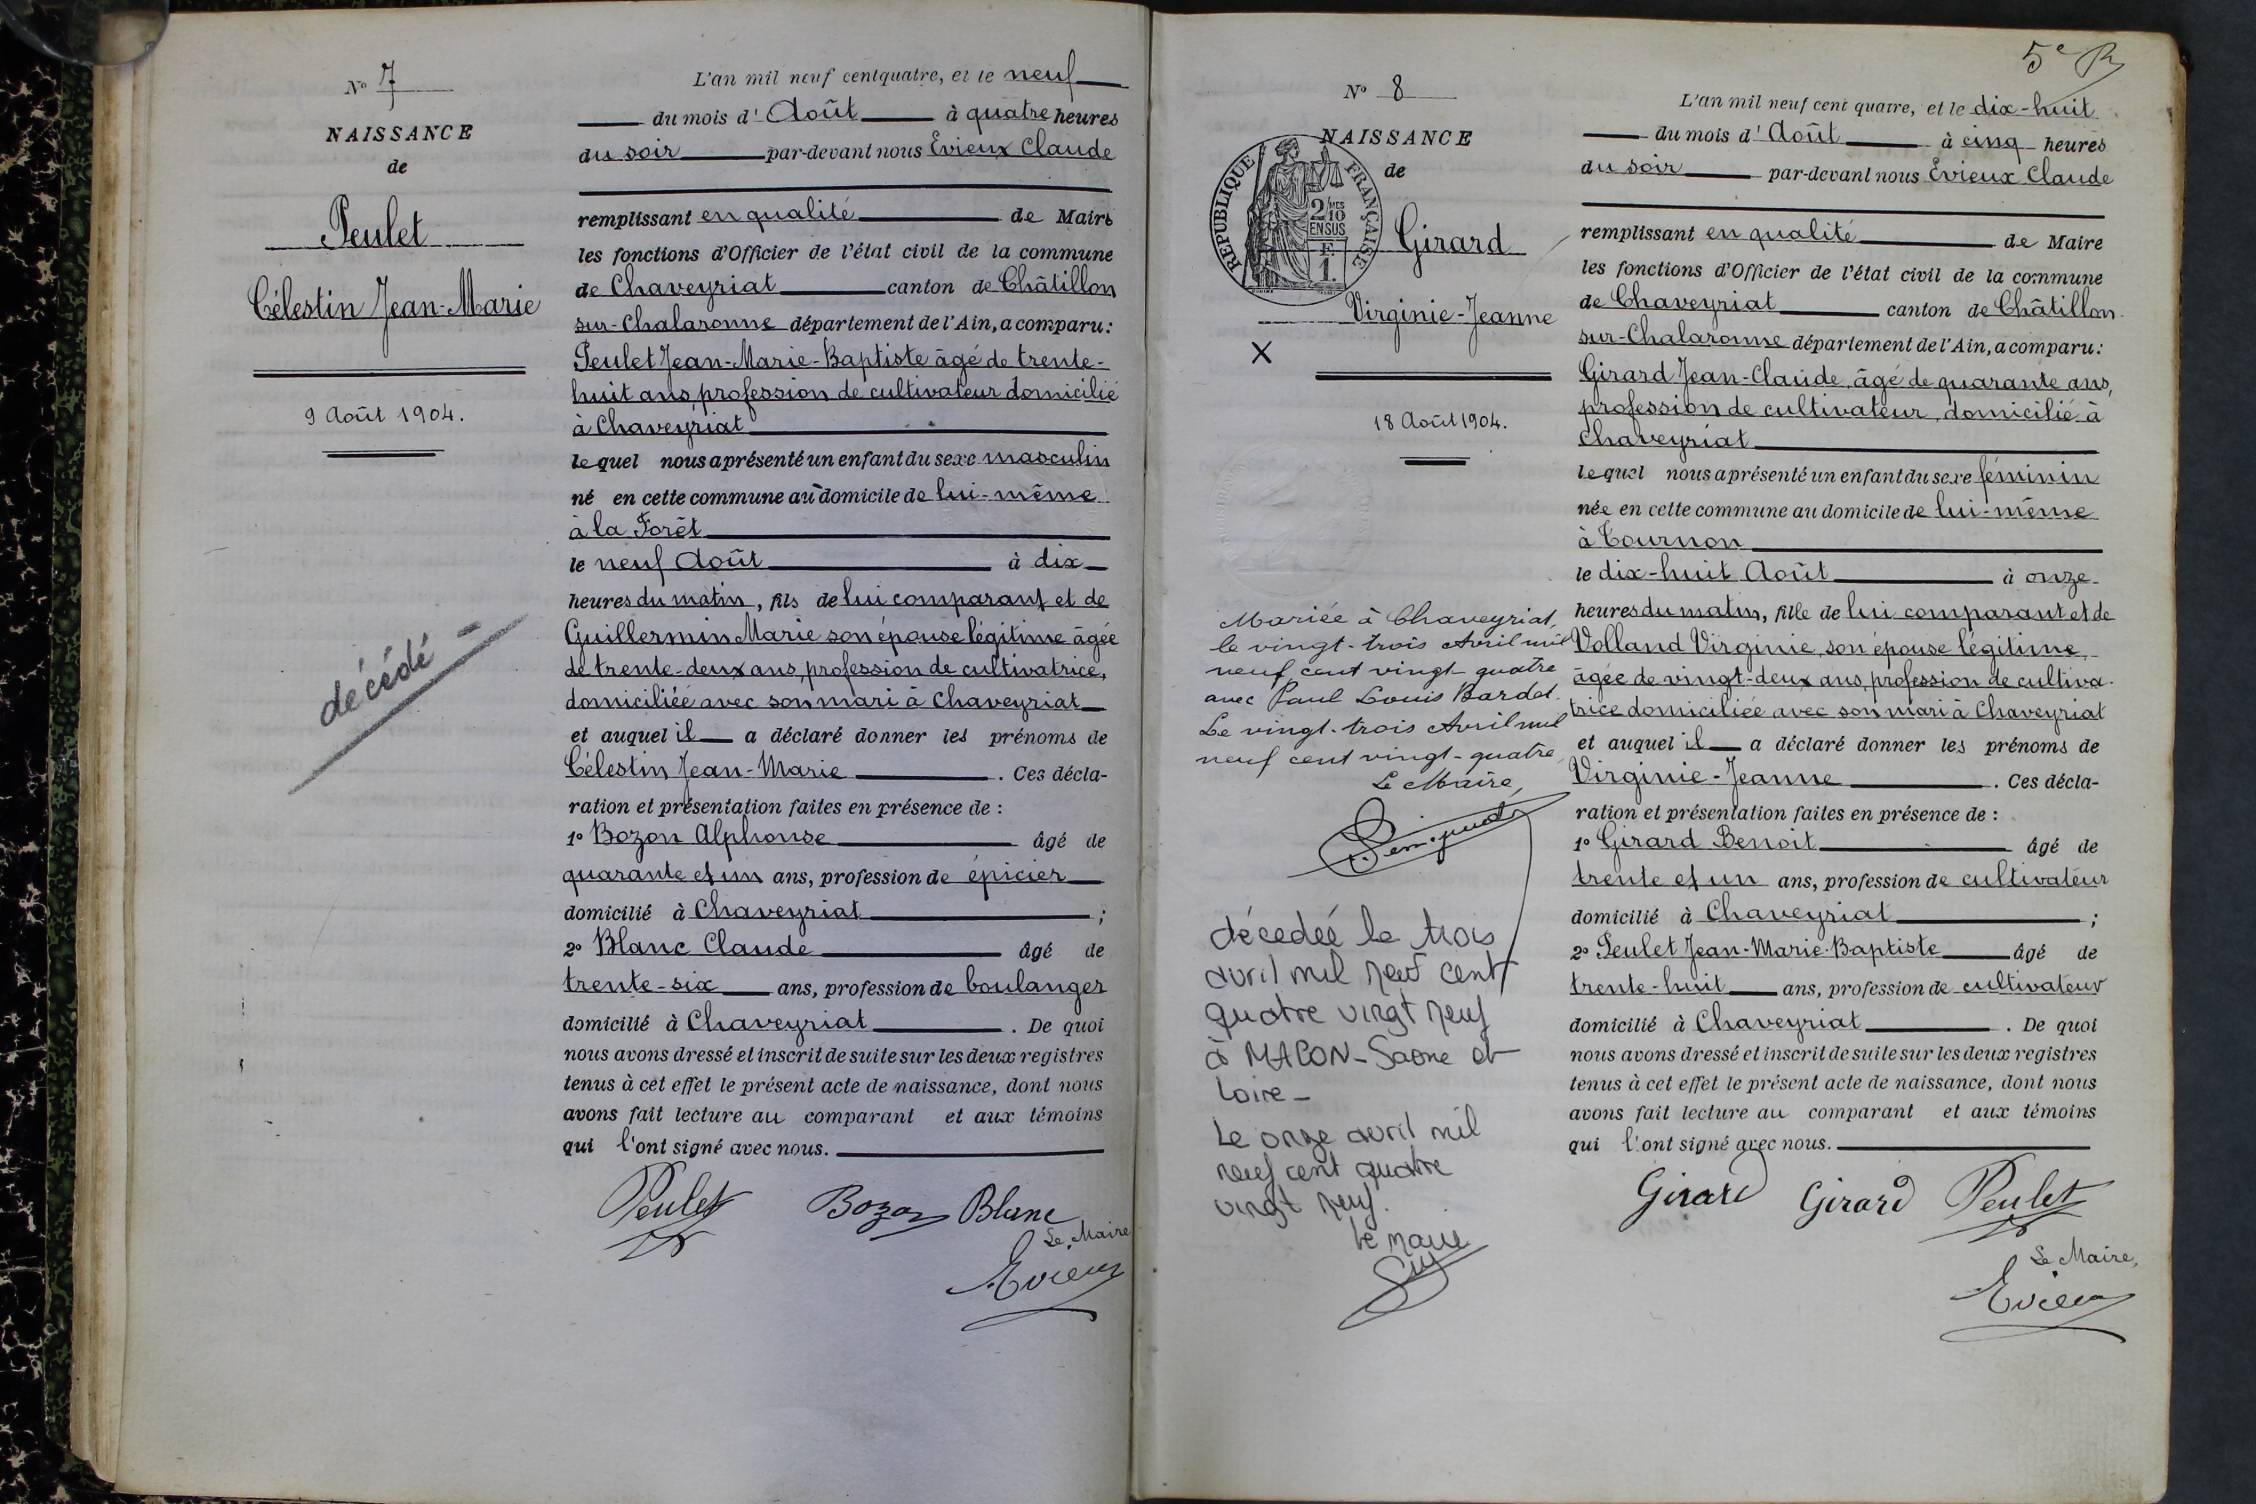 No 7
NAISSANCE
de
Peulet
Célestin Jean-Marie
9 Août 1904.
décédé
L'an mil neuf cent quatre, et le neuf
du mois d'Août à quatre heures
du soir par-devant nous Evieux Claude
remplissant en qualité de Maire
les fonctions d'Officier de l'état civil de la commune
de Chaveyriat canton de Châtillon
sur-Chalaronne département de l'Ain, a comparu:
Peulet Jean-Marie-Baptiste âgé de trente-
huit ans, profession de cultivateur domicilié
à Chaveyriat
lequel nous a présenté un enfant du sexe masculin
né en cette commune au domicile de lui-même
à la Forêt
le neuf Août à dix
heures du matin, fils de lui comparant et de
Guillermin Marie son épouse légitime âgée
de trente-deux ans, profession de cultivatrice,
domiciliée avec son mari à Chaveyriat
et auquel il a déclaré donner les prénoms de
Célestin Jean-Marie. Ces décla-
ration et présentation faites en présence de :
1º Bozon Alphonse âgé de
quarante et un ans, profession de épicier
domicilié à Chaveyriat ;
2º Blanc Claude âgé de
trente-six ans, profession de boulanger
domicilié à Chaveyriat. De quoi
nous avons dressé et inscrit de suite sur les deux registres
tenus à cet effet le présent acte de naissance, dont nous
avons fait lecture au comparant et aux témoins
qui l'ont signé avec nous.
Peulet Bozon Blanc
Le Maire
Evieux
5e
No 8
NAISSANCE
de
RÉPUBLIQUE FRANÇAISE
2/10 MES
EN SUS
F.
1.
Girard
Virginie-Jeanne
X
18 Août 1904.
Mariée à Chaveyriat,
le vingt-trois Avril mil
neuf cent vingt-quatre
avec Paul Louis Bardet.
Le vingt-trois Avril mil
neuf cent vingt-quatre,
Le Maire,
décedeé le trois
avril mil neuf cent
quatre vingt neuf
à MACON-Saone et
Loire -
Le onze avril mil
neuf cent quatre
vingt neuf.
Le maire
L'an mil neuf cent quatre, et le dix-huit
du mois d'Août à cinq heures
du soir par-devant nous Evieux Claude
remplissant en qualité de Maire
les fonctions d'Officier de l'état civil de la commune
de Chaveyriat canton de Châtillon
sur-Chalaronne département de l'Ain, a comparu:
Girard Jean-Claude, âgé de quarante ans,
profession de cultivateur, domicilié à
Chaveyriat
lequel nous a présenté un enfant du sexe féminin
née en cette commune au domicile de lui-même
à Tournon
le dix-huit Août à onze
heures du matin, fille de lui comparant et de
Volland Virginie, son épouse légitime,
âgée de vingt-deux ans, profession de cultiva-
trice domiciliée avec son mari à Chaveyriat
et auquel il a déclaré donner les prénoms de
Virginie-Jeanne. Ces décla-
ration et présentation faites en présence de :
1º Girard Benoit âgé de
trente et un ans, profession de cultivateur
domicilié à Chaveyriat ;
2º Peulet Jean-Marie-Baptiste âgé de
trente-huit ans, profession de cultivateur
domicilié à Chaveyriat. De quoi
nous avons dressé et inscrit de suite sur les deux registres
tenus à cet effet le présent acte de naissance, dont nous
avons fait lecture au comparant et aux témoins
qui l'ont signé avec nous.
Girard Girard Peulet
Le Maire,
Evieux